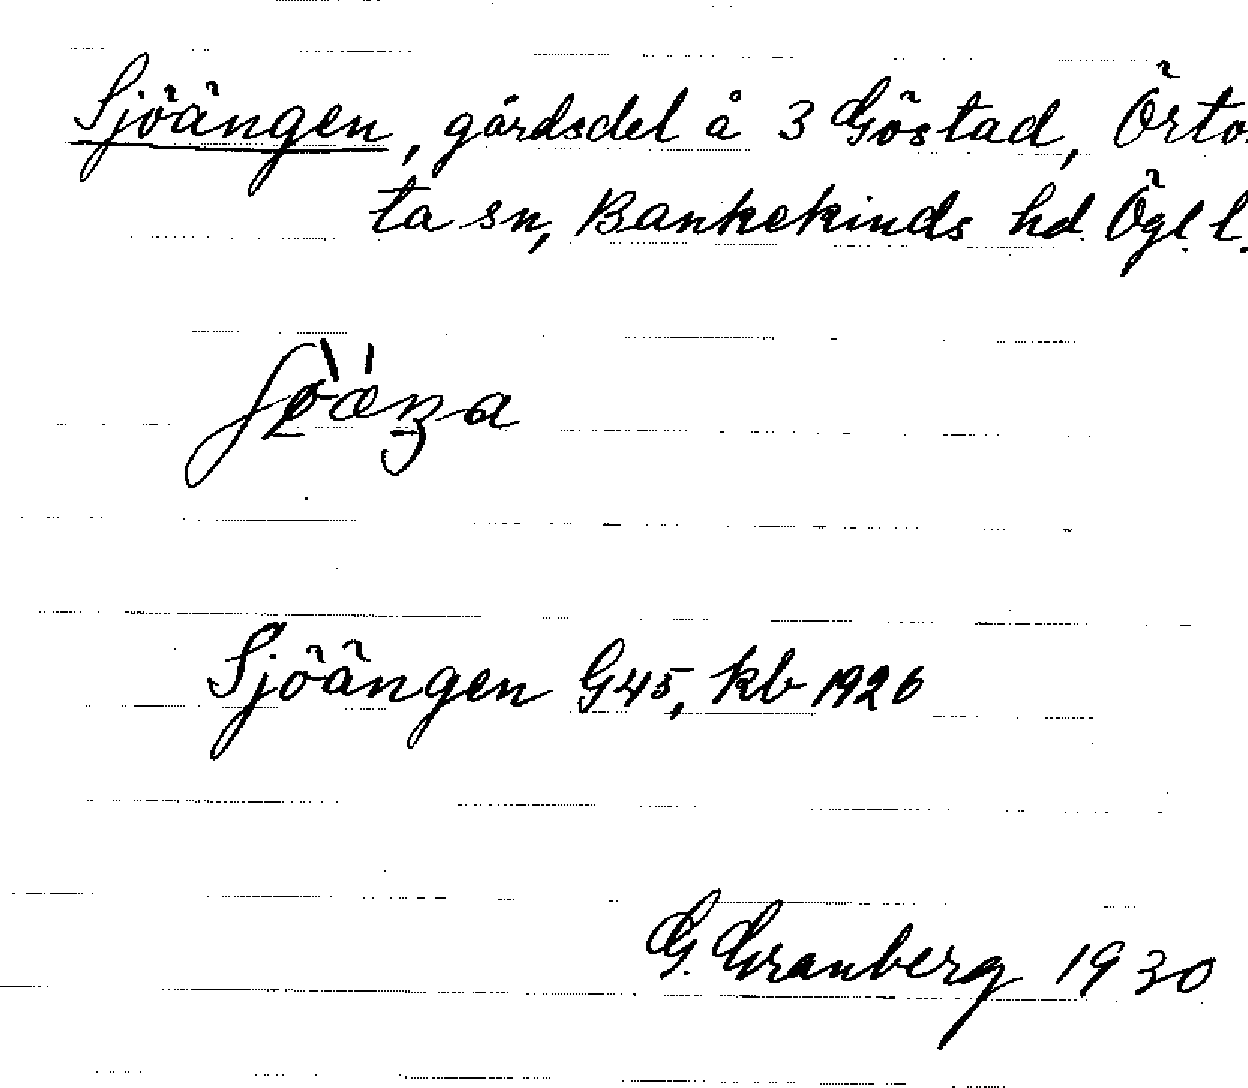 Sjöängen, gårdsdel å 3 Göstad, Örto
ta sn, Bankekinds hd Ögl. l.
Sjöängen G45, kb 1926
G. Granberg 1930